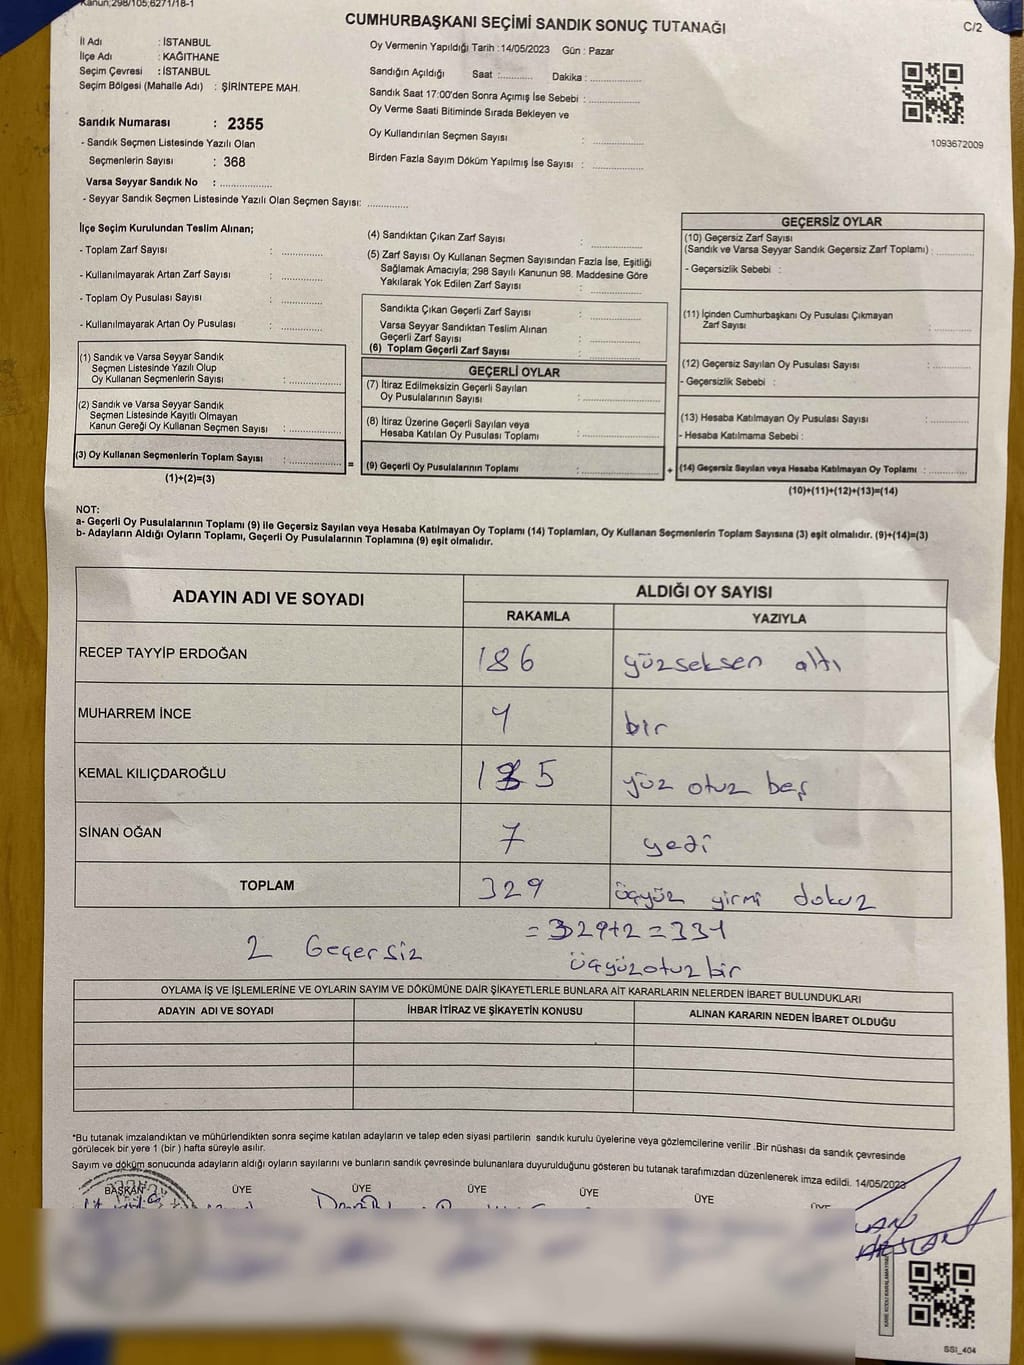 Kanun;298/105,6271/18-1
CUMHURBAŞKANI SEÇİMİ SANDIK SONUÇ TUTANAĞI
C/2
İl Adı : İSTANBUL
İlçe Adı : KAĞITHANE
Seçim Çevresi : İSTANBUL
Seçim Bölgesi (Mahalle Adı) : ŞİRİNTEPE MAH.
Sandık Numarası : 2355
- Sandık Seçmen Listesinde Yazılı Olan
Seçmenlerin Sayısı : 368
Varsa Seyyar Sandık No : ................
- Seyyar Sandık Seçmen Listesinde Yazılı Olan Seçmen Sayısı: ............
Oy Vermenin Yapıldığı Tarih : 14/05/2023 Gün : Pazar
Sandığın Açıldığı Saat :.......... Dakika : ................
Sandık Saat 17:00'den Sonra Açımış İse Sebebi : ................
Oy Verme Saati Bitiminde Sırada Bekleyen ve
Oy Kullandırılan Seçmen Sayısı : ................
Birden Fazla Sayım Döküm Yapılmış İse Sayısı : ................
1093672009
İlçe Seçim Kurulundan Teslim Alınan;
- Toplam Zarf Sayısı : ............
- Kullanılmayarak Artan Zarf Sayısı : ............
- Toplam Oy Pusulası Sayısı : ............
- Kullanılmayarak Artan Oy Pusulası : ............
(1) Sandık ve Varsa Seyyar Sandık
Seçmen Listesinde Yazılı Olup
Oy Kullanan Seçmenlerin Sayısı : ................
(2) Sandık ve Varsa Seyyar Sandık
Seçmen Listesinde Kayıtlı Olmayan
Kanun Gereği Oy Kullanan Seçmen Sayısı : ................
(3) Oy Kullanan Seçmenlerin Toplam Sayısı : ................
(1)+(2)=(3)
(4) Sandıktan Çıkan Zarf Sayısı : ................
(5) Zarf Sayısı Oy Kullanan Seçmen Sayısından Fazla İse, Eşitliği
Sağlamak Amacıyla; 298 Sayılı Kanunun 98. Maddesine Göre
Yakılarak Yok Edilen Zarf Sayısı : ................
Sandıkta Çıkan Geçerli Zarf Sayısı : ................
Varsa Seyyar Sandıktan Teslim Alınan
Geçerli Zarf Sayısı : ................
(6) Toplam Geçerli Zarf Sayısı : ................
GEÇERLİ OYLAR
(7) İtiraz Edilmeksizin Geçerli Sayılan
Oy Pusulalarının Sayısı : ................
(8) İtiraz Üzerine Geçerli Sayılan veya
Hesaba Katılan Oy Pusulası Toplamı : ................
= (9) Geçerli Oy Pusulalarının Toplamı : ................ +
GEÇERSİZ OYLAR
(10) Geçersiz Zarf Sayısı
(Sandık ve Varsa Seyyar Sandık Geçersiz Zarf Toplamı) : ............
- Geçersizlik Sebebi :
(11) İçinden Cumhurbaşkanı Oy Pusulası Çıkmayan
Zarf Sayısı : ............
(12) Geçersiz Sayılan Oy Pusulası Sayısı : ............
- Geçersizlik Sebebi :
(13) Hesaba Katılmayan Oy Pusulası Sayısı : ............
- Hesaba Katılmama Sebebi :
(14) Geçersiz Sayılan veya Hesaba Katılmayan Oy Toplamı : ............
(10)+(11)+(12)+(13)=(14)
NOT:
a- Geçerli Oy Pusulalarının Toplamı (9) ile Geçersiz Sayılan veya Hesaba Katılmayan Oy Toplamı (14) Toplamları, Oy Kullanan Seçmenlerin Toplam Sayısına (3) eşit olmalıdır. (9)+(14)=(3)
b- Adayların Aldığı Oyların Toplamı, Geçerli Oy Pusulalarının Toplamına (9) eşit olmalıdır.
ADAYIN ADI VE SOYADI ALDIĞI OY SAYISI
RAKAMLA YAZIYLA
RECEP TAYYİP ERDOĞAN 186 yüzseksen altı
MUHARREM İNCE 1 bir
KEMAL KILIÇDAROĞLU 135 yüz otuz beş
SİNAN OĞAN 7 yedi
TOPLAM 329 üçyüz yirmi dokuz
2 Geçersiz = 329+2 = 331
üçyüzotuz bir
OYLAMA İŞ VE İŞLEMLERİNE VE OYLARIN SAYIM VE DÖKÜMÜNE DAİR ŞİKAYETLERLE BUNLARA AİT KARARLARIN NELERDEN İBARET BULUNDUKLARI
ADAYIN ADI VE SOYADI İHBAR İTİRAZ VE ŞİKAYETİN KONUSU ALINAN KARARIN NEDEN İBARET OLDUĞU
*Bu tutanak imzalandıktan ve mühürlendikten sonra seçime katılan adayların ve talep eden siyasi partilerin sandık kurulu üyelerine veya gözlemcilerine verilir .Bir nüshası da sandık çevresinde
görülecek bir yere 1 (bir ) hafta süreyle asılır.
Sayım ve döküm sonucunda adayların aldığı oyların sayılarını ve bunların sandık çevresinde bulunanlara duyurulduğunu gösteren bu tutanak tarafımızdan düzenlenerek imza edildi. 14/05/2023
BAŞKAN ÜYE ÜYE ÜYE ÜYE ÜYE ÜYE
SSI_404